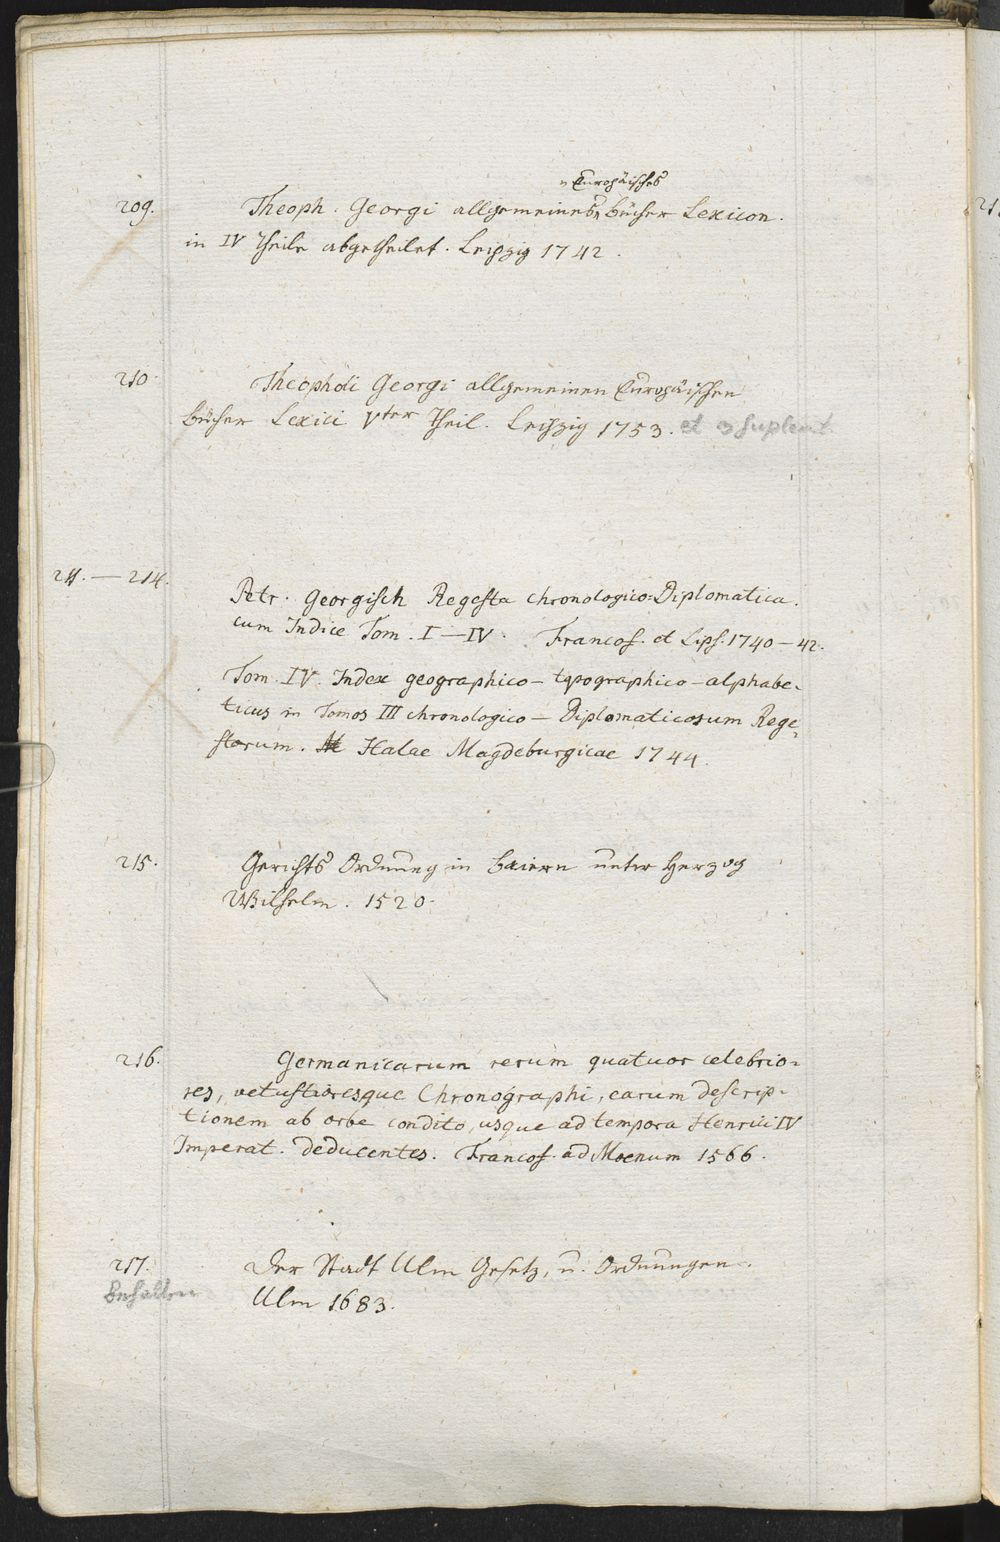 Europäisches
209. Theoph. Georgi allgemeines Bücher Lexicon.
in IV Theile abgetheilet. Leipzig 1742.
210. Theophili Georgi allgemeinen Europäischen
Bücher Lexici Vter Theil. Leipzig 1753. et 3 Suplent.
211. — 214.
Petr. Georgisch Regesta chronologico-Diplomatica.
cum Indice Tom. I — IV. Francof. et Lips. 1740 — 42.
Tom. IV. Index geographico — typographico — alphabe-
ticus in Tomos III chronologico — Diplomaticorum Rege-
storum. Halae Magdeburgicae 1744.
215. Gerichts Ordnung in Baiern unter Herzog
Wilhelm. 1520.
216. Germanicarum rerum quatuor celebrio-
res, vetustioresque Chronographi, earum descrip-
tionem ab orbe condito, usque ad tempora Henrici IV
Imperat. deducentes. Francof. ad Moenum 1566.
217. Der Stadt Ulm Gesetz, u. Ordnungen.
Behalten
Ulm 1683.